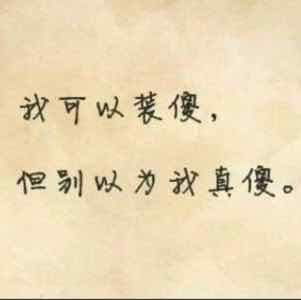 我可以装傻，
但别以为我真傻。